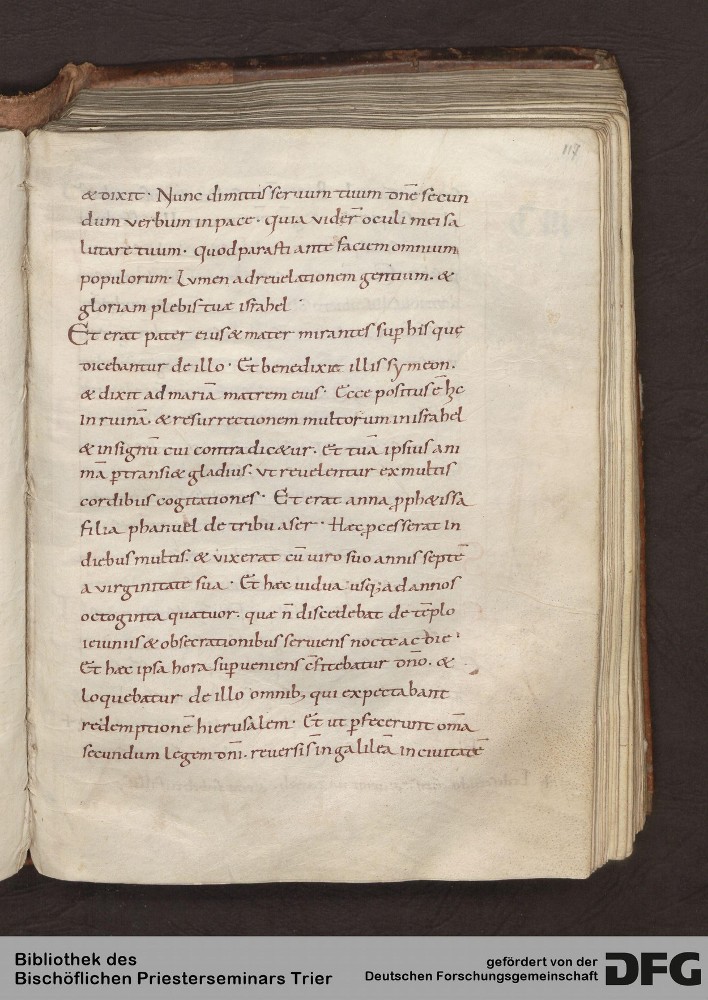 117
& dixit · Nunc dimittis seruum tuum dn̄e secun
dum uerbum in pace · quia uider̄ oculi mei sa
lutare tuum · quod parasti ante faciem omnium
populorum · Lumen ad reuelationem gentium · &
gloriam plebis tuae israhel ·
Et erat pater eius & mater mirantes sup̄ his que
dicebantur de illo · Et benedixit illis symeon ·
& dixit ad mariā matrem eius · Ecce positus ē hc̄
in ruinā · & resurrectionem multorum in israhel
& in signū cui contradic&ur · Et tuā ipsius ani
mā ꝑtransi& gladius · ut reuelentur ex multis
cordibus cogitationes · Et erat anna ꝓph&issa
filia phanuel de tribu aser · Haec ꝓcesserat in
diebus multis · & uixerat cū uiro suo annis septē
a uirginitate sua · Et haec uidua usq; ad annos
octoginta quatuor · quae n̄ discedebat de tēplo
ieiuniis & obsecrationibus seruiens nocte ac die ·
Et haec ipsa hora superueniens cf̄itebatur dn̄o · &
loquebatur de illo omnib; qui expectabant
redemptionē hierusalem · Et ut ꝑfecerunt om̄a
secundum legem dn̄i · reuersi s̄ in galileā in ciuitatē
Bibliothek des
Bischöflichen Priesterseminars Trier
gefördert von der
Deutschen Forschungsgemeinschaft
DFG